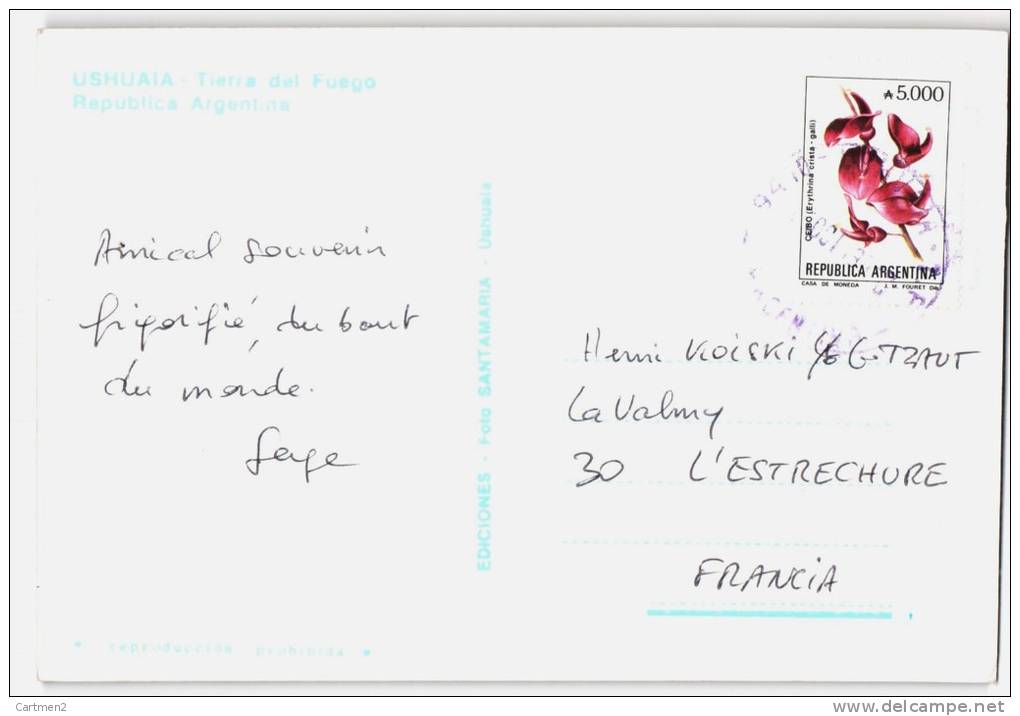 USHUAIA - Tierra del Fuego
Republica Argentina
₳5.000
CEIBO (Erythrina crista - galli)
REPUBLICA ARGENTINA
CASA DE MONEDA J. M. FOURET Dib.
Amical souvenir
frigorifié, du bout
du monde.
Serge
EDICIONES - Foto SANTAMARIA - Ushuaia
Henri KOISKI c/o G. TZAUT
La Valmy
30 L'ESTRECHURE
FRANCIA
* reproducción prohibida *
Cartmen2
www.delcampe.net